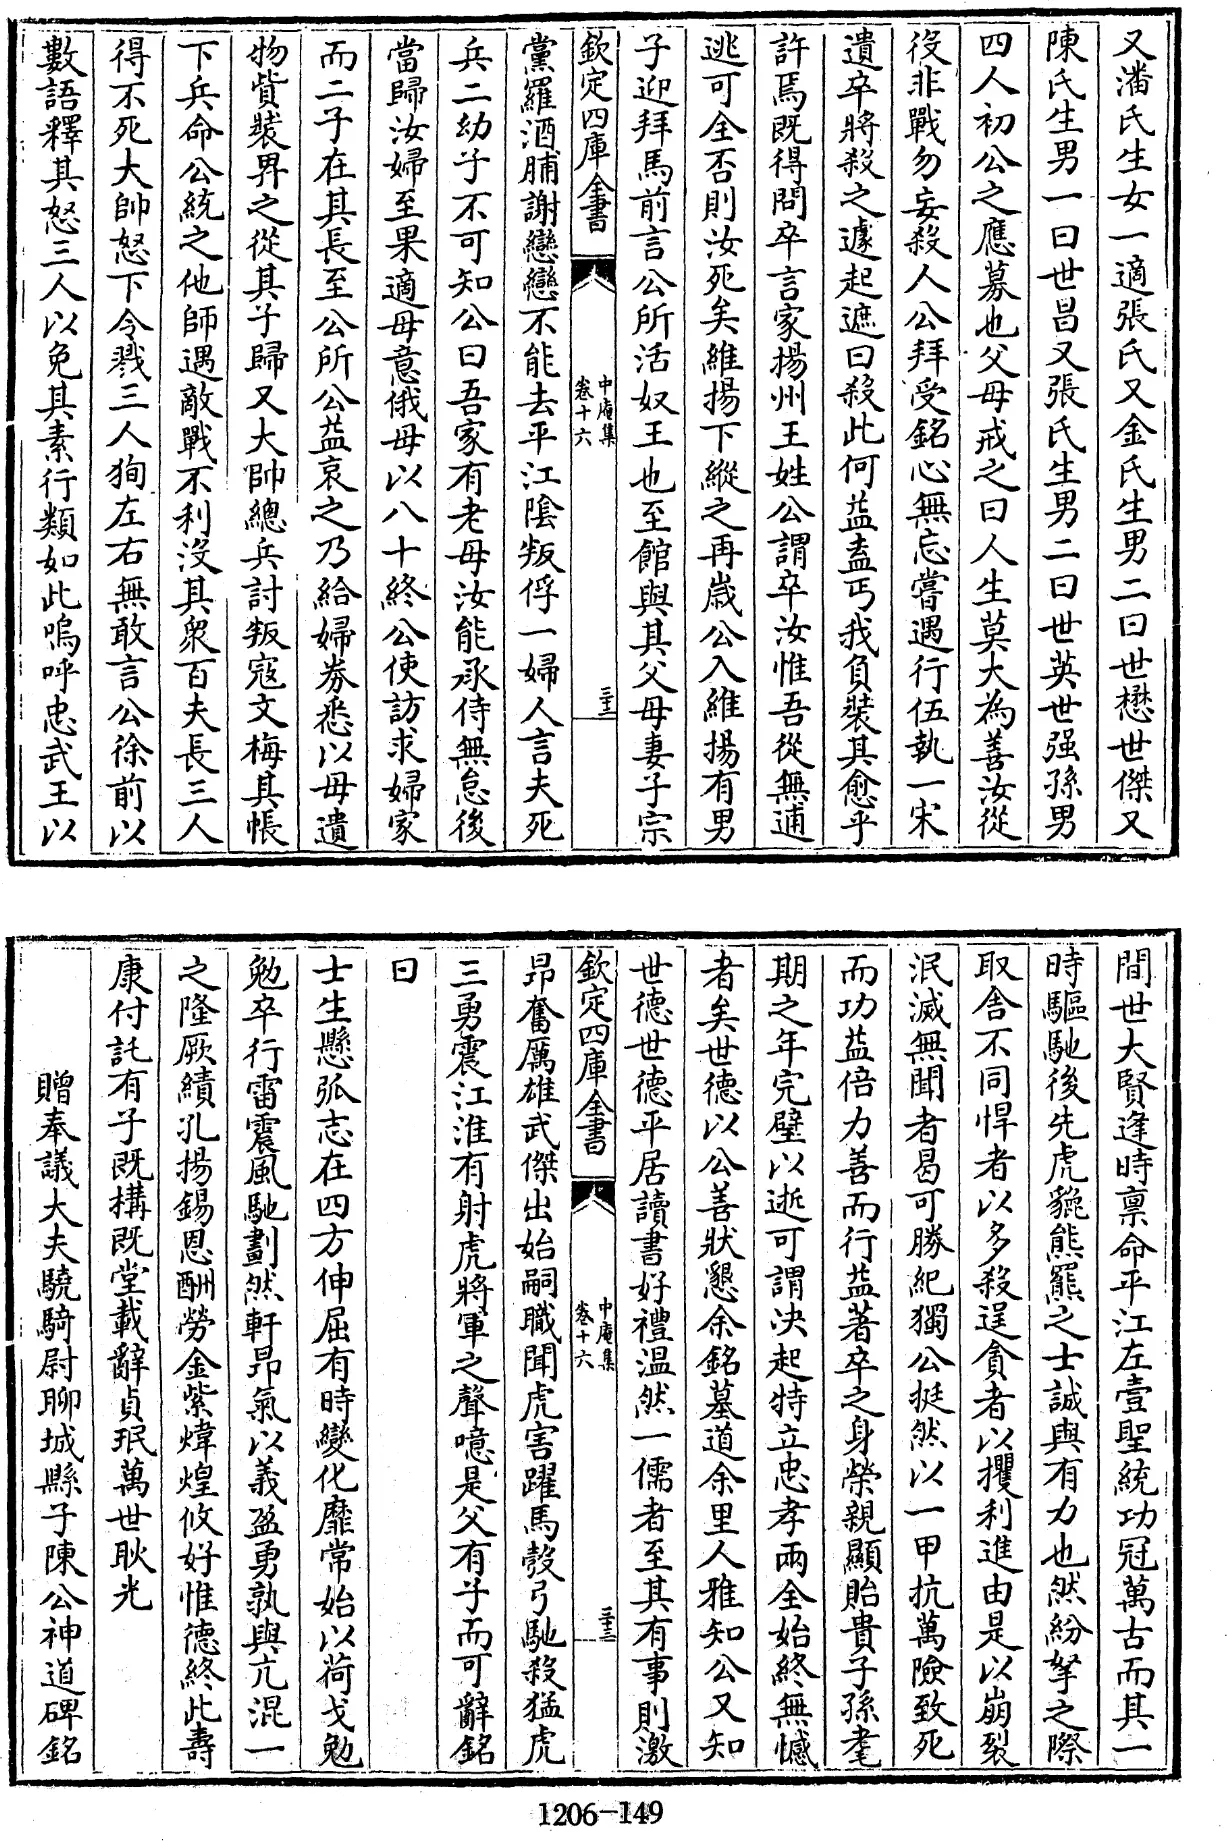 又潘氏生女一適張氏又金氏生男二曰世懋世傑又
陳氏生男一曰世昌又張氏生男二曰世英世强孫男
四人初公之應募也父母戒之曰人生莫大為善汝從
役非戰勿妄殺人公拜受銘心無忘嘗遇行伍執一宋
遺卒將殺之遽起遮曰殺此何益盍丐我負裝其愈乎
許焉既得問卒言家揚州王姓公謂卒汝惟吾從無逋
逃可全否則汝死矣維揚下縱之再歲公入維揚有男
子迎拜馬前言公所活奴王也至館與其父母妻子宗
欽定四庫全書
中庵集
卷十六
三十二
黨羅酒脯謝戀戀不能去平江陰叛俘一婦人言夫死
兵二幼子不可知公曰吾家有老母汝能承侍無怠後
當歸汝婦至果適母意俄母以八十終公使訪求婦家
而二子在其長至公所公益哀之乃給婦券悉以母遺
物貲裝畀之從其子歸又大帥總兵討叛寇文梅其帳
下兵命公統之他師遇敵戰不利沒其衆百夫長三人
得不死大帥怒下令戮三人狥左右無敢言公徐前以
數語釋其怒三人以免其素行類如此嗚呼忠武王以
間世大賢逢時禀命平江左壹聖統功冠萬古而其一
時驅馳後先虎貔熊羆之士誠與有力也然紛拏之際
取舍不同悍者以多殺逞貪者以攫利進由是以崩裂
泯滅無聞者曷可勝紀獨公挺然以一甲抗萬險致死
而功益倍力善而行益著卒之身榮親顯貽貴子孫耄
期之年完璧以逝可謂決起特立忠孝兩全始終無憾
者矣世德以公善狀懇余銘墓道余里人雅知公又知
世德世德平居讀書好禮溫然一儒者至其有事則激
欽定四庫全書
中庵集
卷十六
三十三
昂奮厲雄武傑出始嗣職聞虎害躍馬彀弓馳殺猛虎
三勇震江淮有射虎將軍之聲噫是父有子而可辭銘
曰
士生懸弧志在四方伸屈有時變化靡常始以荷戈勉
勉卒行雷震風馳劃然軒昂氣以義盈勇孰與亢混一
之隆厥績孔揚錫恩酬勞金紫煒煌攸好惟德終此壽
康付託有子既構既堂載辭貞珉萬世耿光
贈奉議大夫驍騎尉聊城縣子陳公神道碑銘
1206-149